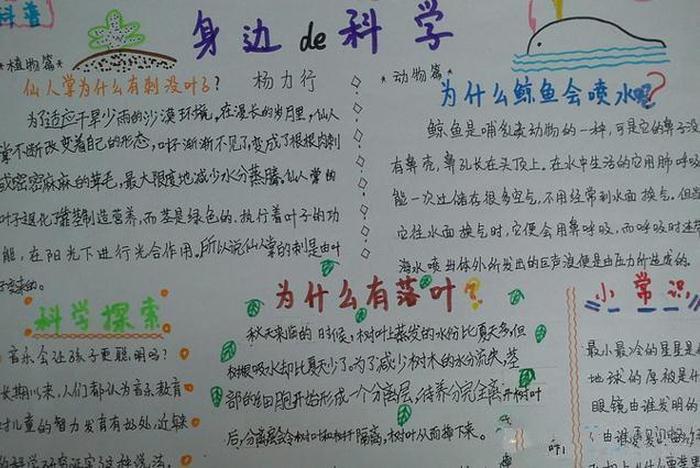 科普
身边de科学
*植物篇*
仙人掌为什么有刺没叶子?
杨力行
为了适应干旱少雨的沙漠环境。在漫长的岁月里,仙人
掌不断改变着自己的形态,叶子渐渐不见了,变成了根根肉刺
或密密麻麻的茸毛,最大限度地减少水分蒸腾。仙人掌的
叶子退化了靠茎制造营养,而茎是绿色的,执行着叶子的功
能,在阳光下进行光合作用。所以说仙人掌的刺是由叶
子变来的。
*动物篇*
为什么鲸鱼会喷水?
鲸鱼是哺乳类动物的一种,可是它的鼻子没
有鼻壳,鼻孔长在头顶上。在水中生活的它用肺呼吸
能一次让储存很多空气,不用经常到水面换气。但当
它往水面换气时,它便会用鼻呼吸,而呼吸时连带
海水喷出体外所发出的巨声浪便是由压力所造成的。
科学探索
音乐会让孩子更聪明吗?
长期以来,人们都认为音乐教育
对儿童的智力发育有好处,近来
科学研究证实了这种说法。
为什么有落叶?
秋天来临的时候,树叶上蒸发的水份比夏天多,但
树根吸水却比夏天少了。为了减少树木的水分流失,茎
部的细胞开始形成一个分离层,待养分完全离开树叶
后,分离层会令树叶和树干隔离,树叶从而掉下来。
小常识
最小最冷的星星是
地球的厚被是什
眼镜由谁发明的
(由谁